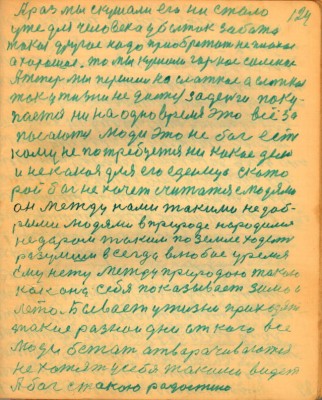 124
А раз мы скушали его ни стало
уже для человека убыток забота
такая другое надо приобретать не плохое
а хорошее. то мы кушали горькое соленое
А теперь мы перешли на сладкое а сладкое
так у жизни не дают за деньги поку-
пается ни на одно время это всё за
посылают люди это не бог есть
кому не потребуется ни какое дело
и не какая для его сделица с кото
рой бог не хочет считатся с людями
он между нами такими не доб-
рыми людями в природе народился
не даром таким по земле ходит
разумеши всегда в любое время
ему нету между природою такою
как она себя показывает зимою
лето. Бывает у жизни приходят
такие разные дни от кого все
люди бегат атварачиваются
не хотят у себя такими видет
А бог с такою радостию